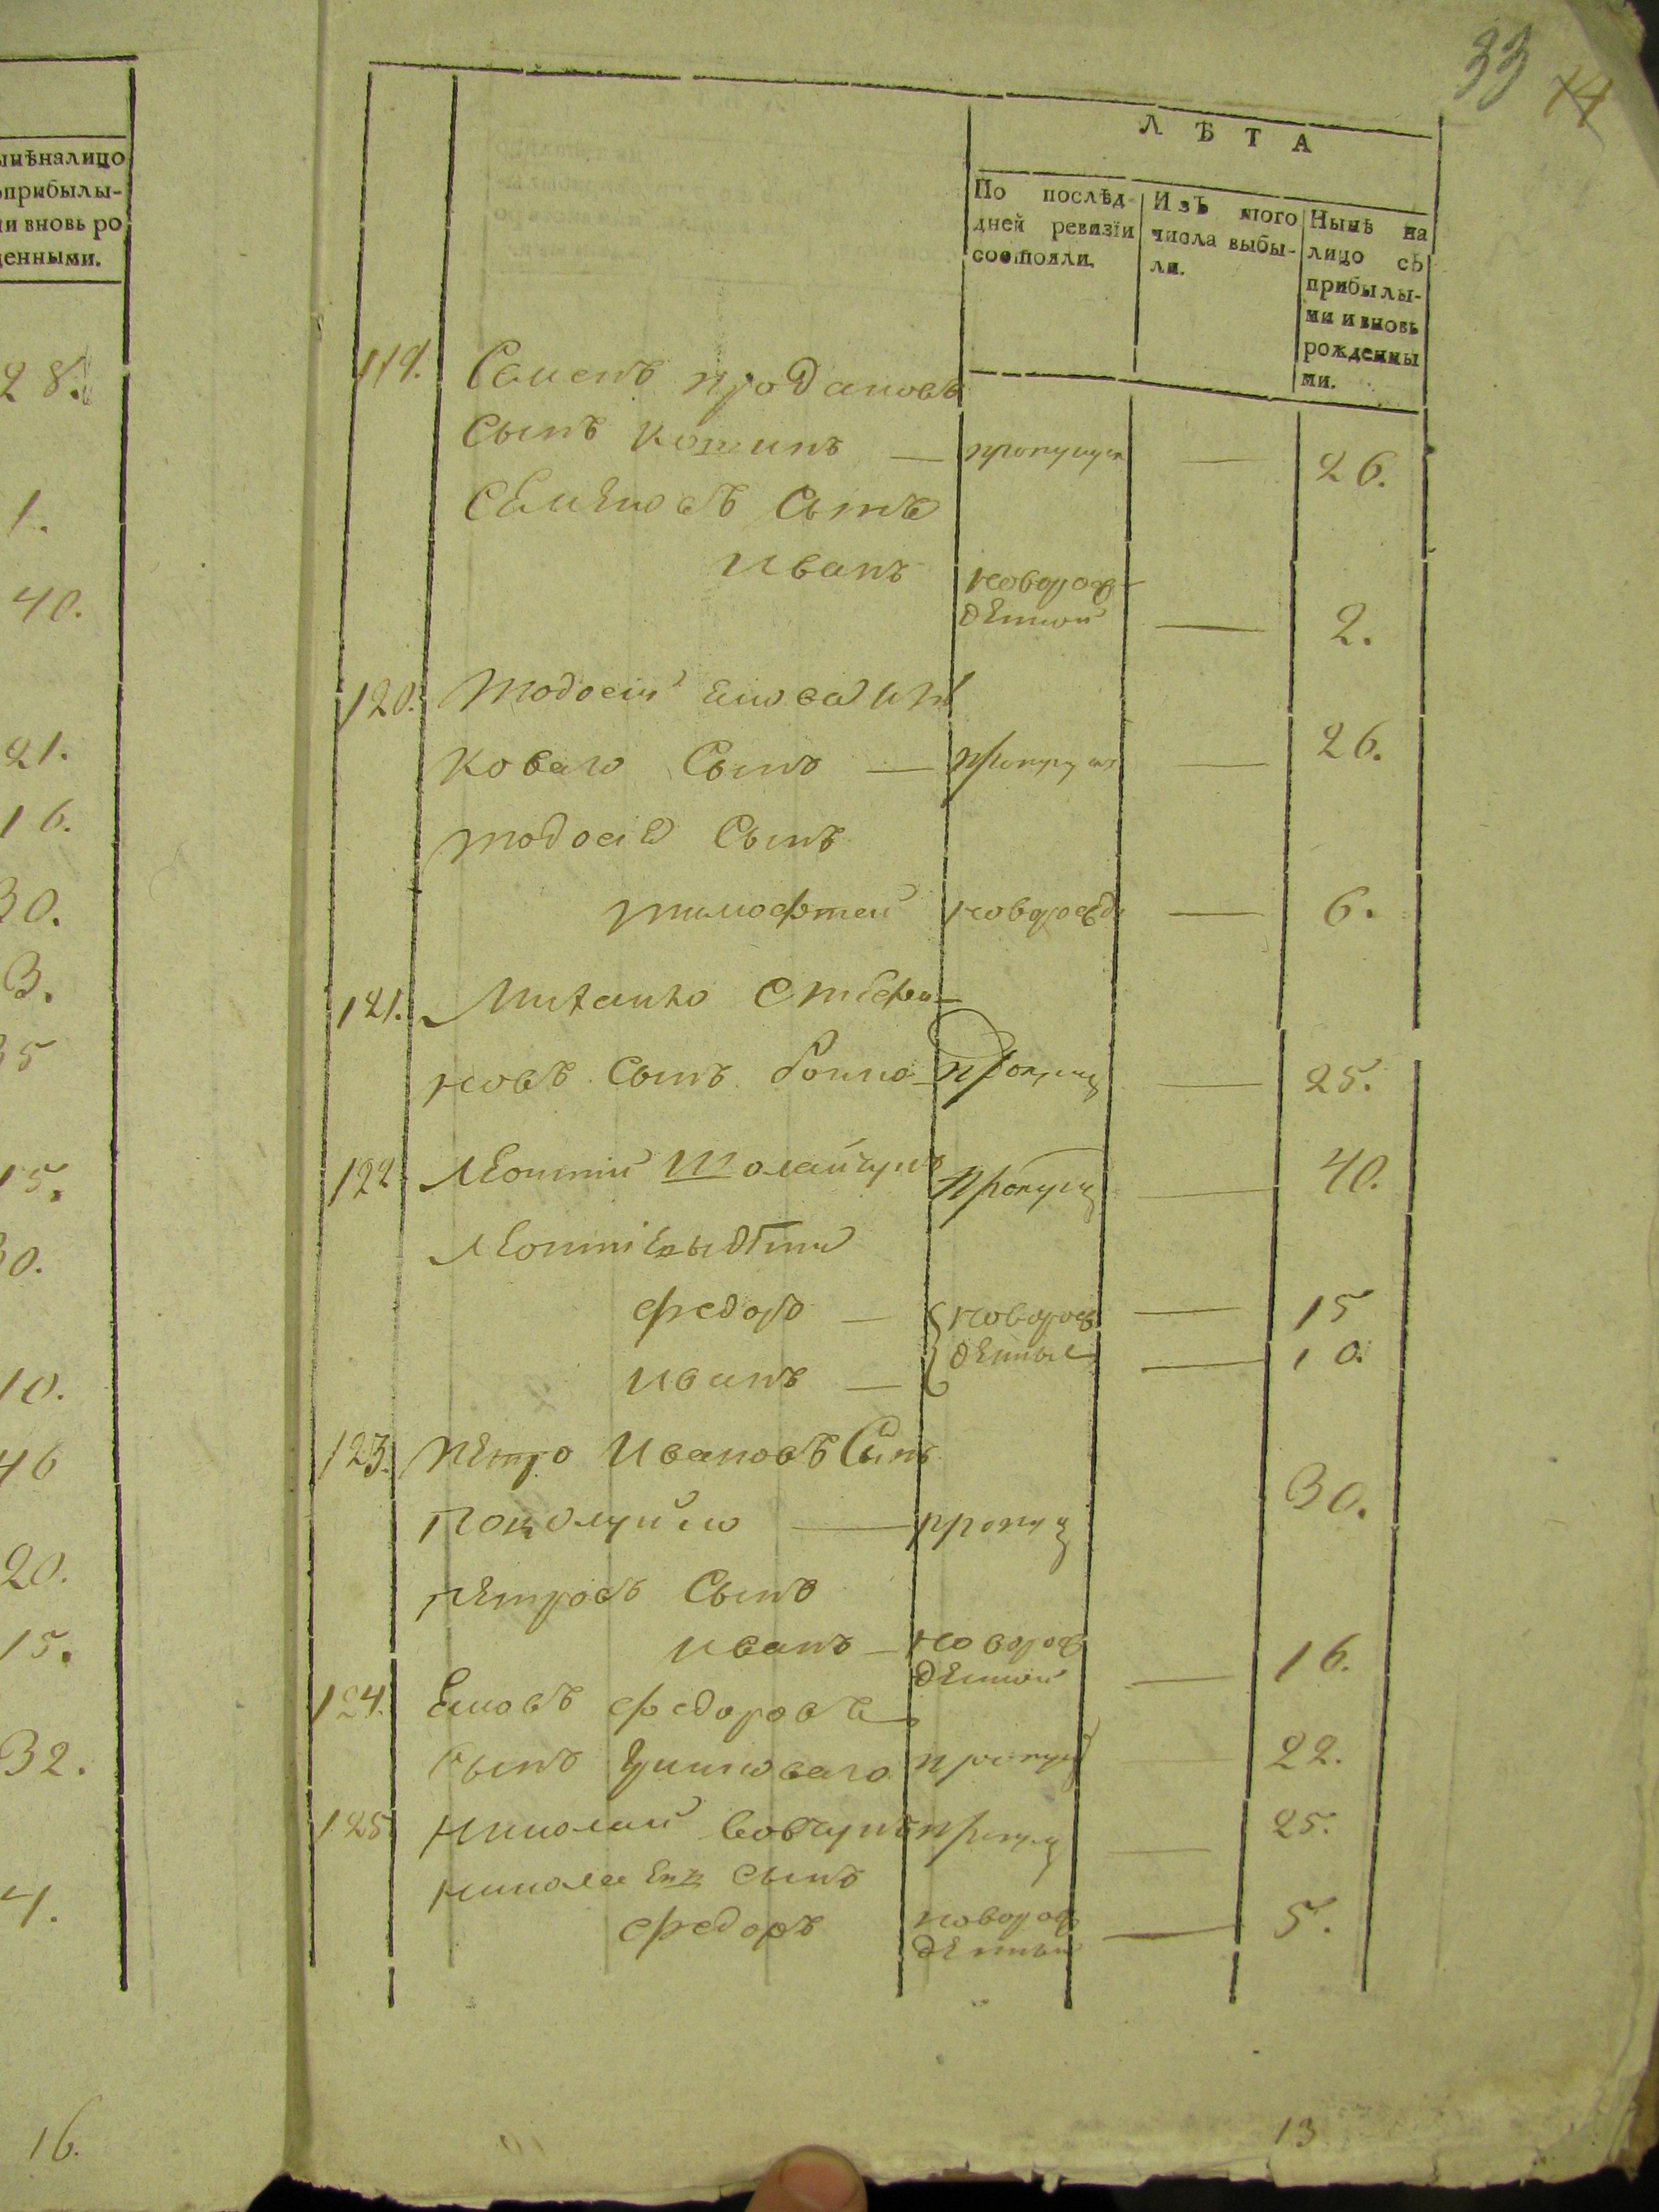 ынѣналицо
оприбылы-
и вновь ро
денными.
28.
1.
40.
21.
16.
30.
3.
35
15.
30.
10.
46
20.
15.
32.
4.
16.
33 14
ЛѢТА
По послѣд-
дней ревизіи
состояли.
Изъ того
числа выбы-
ли.
Нынѣ на
лицо съ
прибылы-
ми и вновь
рожденны
ми.
119. Семенъ продановъ
Сынъ котинъ — пропущен — 26.
Семеновъ Сынъ
Иванъ новорож-
денной — 2.
120. Тодосій
коваго Сынъ — пропущ — 26.
тодосія Сынъ
тимофтей новорожд — 6.
121. Михайло Стефа-
новъ Сынъ пропущ — 25.
122 Леонтій пропущ — 40.
Леонтіевы дѣти
Федоръ — новорож — 15
Иванъ — денные — 10.
123. Петро Ивановъ Сынъ
— пропущ 30.
Петровъ Сынъ
Иванъ — новорож
денной — 16.
124. Федоровъ
сынъ пропущ — 22.
125 Николай пропущ — 25.
николаевъ сынъ
Федоръ новорож
денный — 5.
13